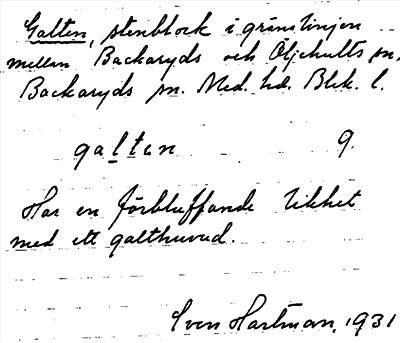 Galten, stenblock i gränslinjen
mellan Backaryds och Öljehults sn,
Backaryds sn. Med. hd. Blek. l.
galtɛn 9.
Har en förbluffande likhet
med ett galthuvud.
Sven Hartman, 1931